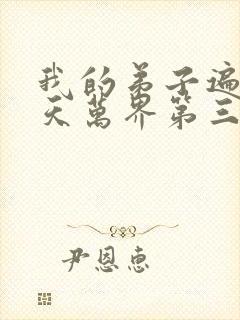 我的弟子遍
天萬界第三
尹恩惠